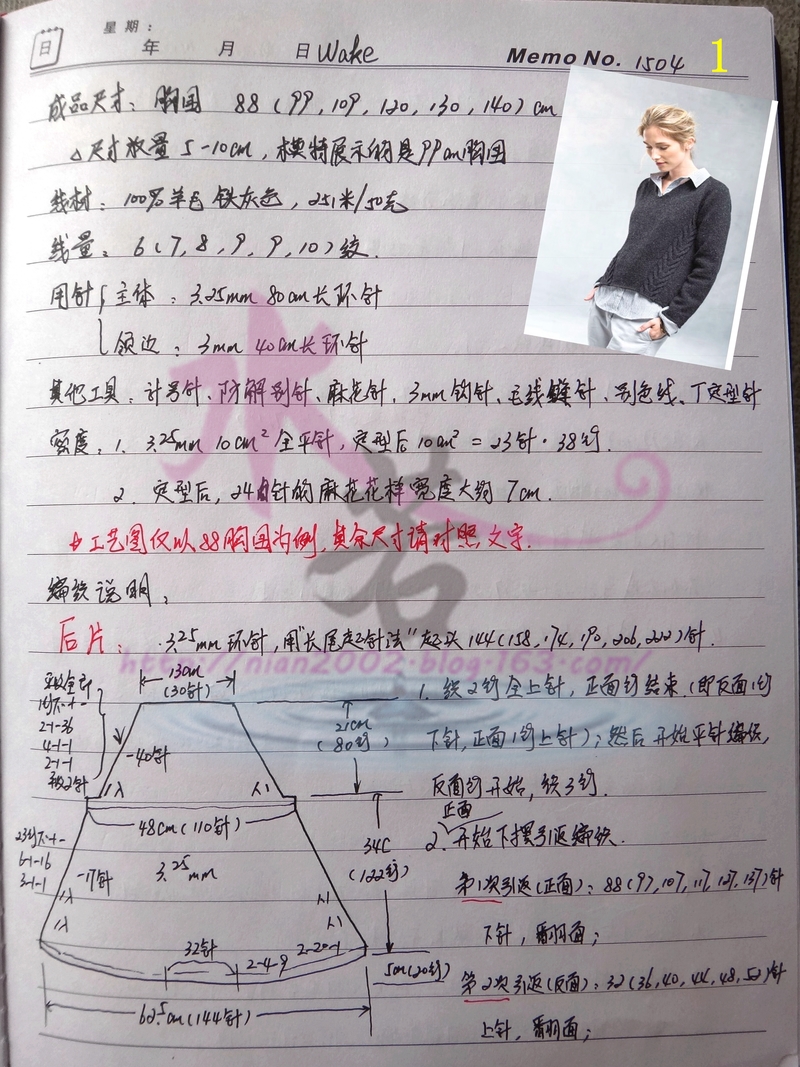 星期：
日 年 月 日 Wake Memo No. 1504 1
成品尺寸：胸围 88（99，109，120，130，140）cm
△尺寸放量 5-10cm，模特展示的是99cm胸围
线材：100%羊毛 铁灰色，251米/50克
线量：6（7，8，9，9，10）绞.
用针 主体：3.25mm 80cm长环针
领边：3mm 40cm长环针
其他工具：计号针、防解别针、麻花针、3mm钩针、毛线缝针、别色线、丁定型针
密度：1. 3.25mm 10cm²全平针，定型后10cm²=23针·38行.
2. 定型后，24针的麻花花样宽度大约7cm.
☆工艺图仅以88胸围为例，其余尺寸请对照文字.
编织说明：
后片：3.25mm环针，用"长尾起针法"起头144（158，174，190，206，222）针.
http://nian2002.blog.163.com/
水若
1. 织2行全上针，正面行结束.（即反面1行
下针，正面1行上针）；然后开始平针编织，
反面行开始，织3行.
2. 正面开始下摆引返编织.
第1次引返（正面）：88（97，107，117，127，137）针
下针，翻面；
第2次引返（反面）：32（36，40，44，48，52）针
上针，翻面；
13cm
（30针）
2-1-36
4-1-1
2-1-1
平收2针
-40针
21cm
（80行）
48cm（110针）
23行不+-
6-1-16
3-1-1
-17针
3.25mm
34C
（122行）
32针
2-4-9
2-20-1
5cm（20行）
62.5cm（144针）